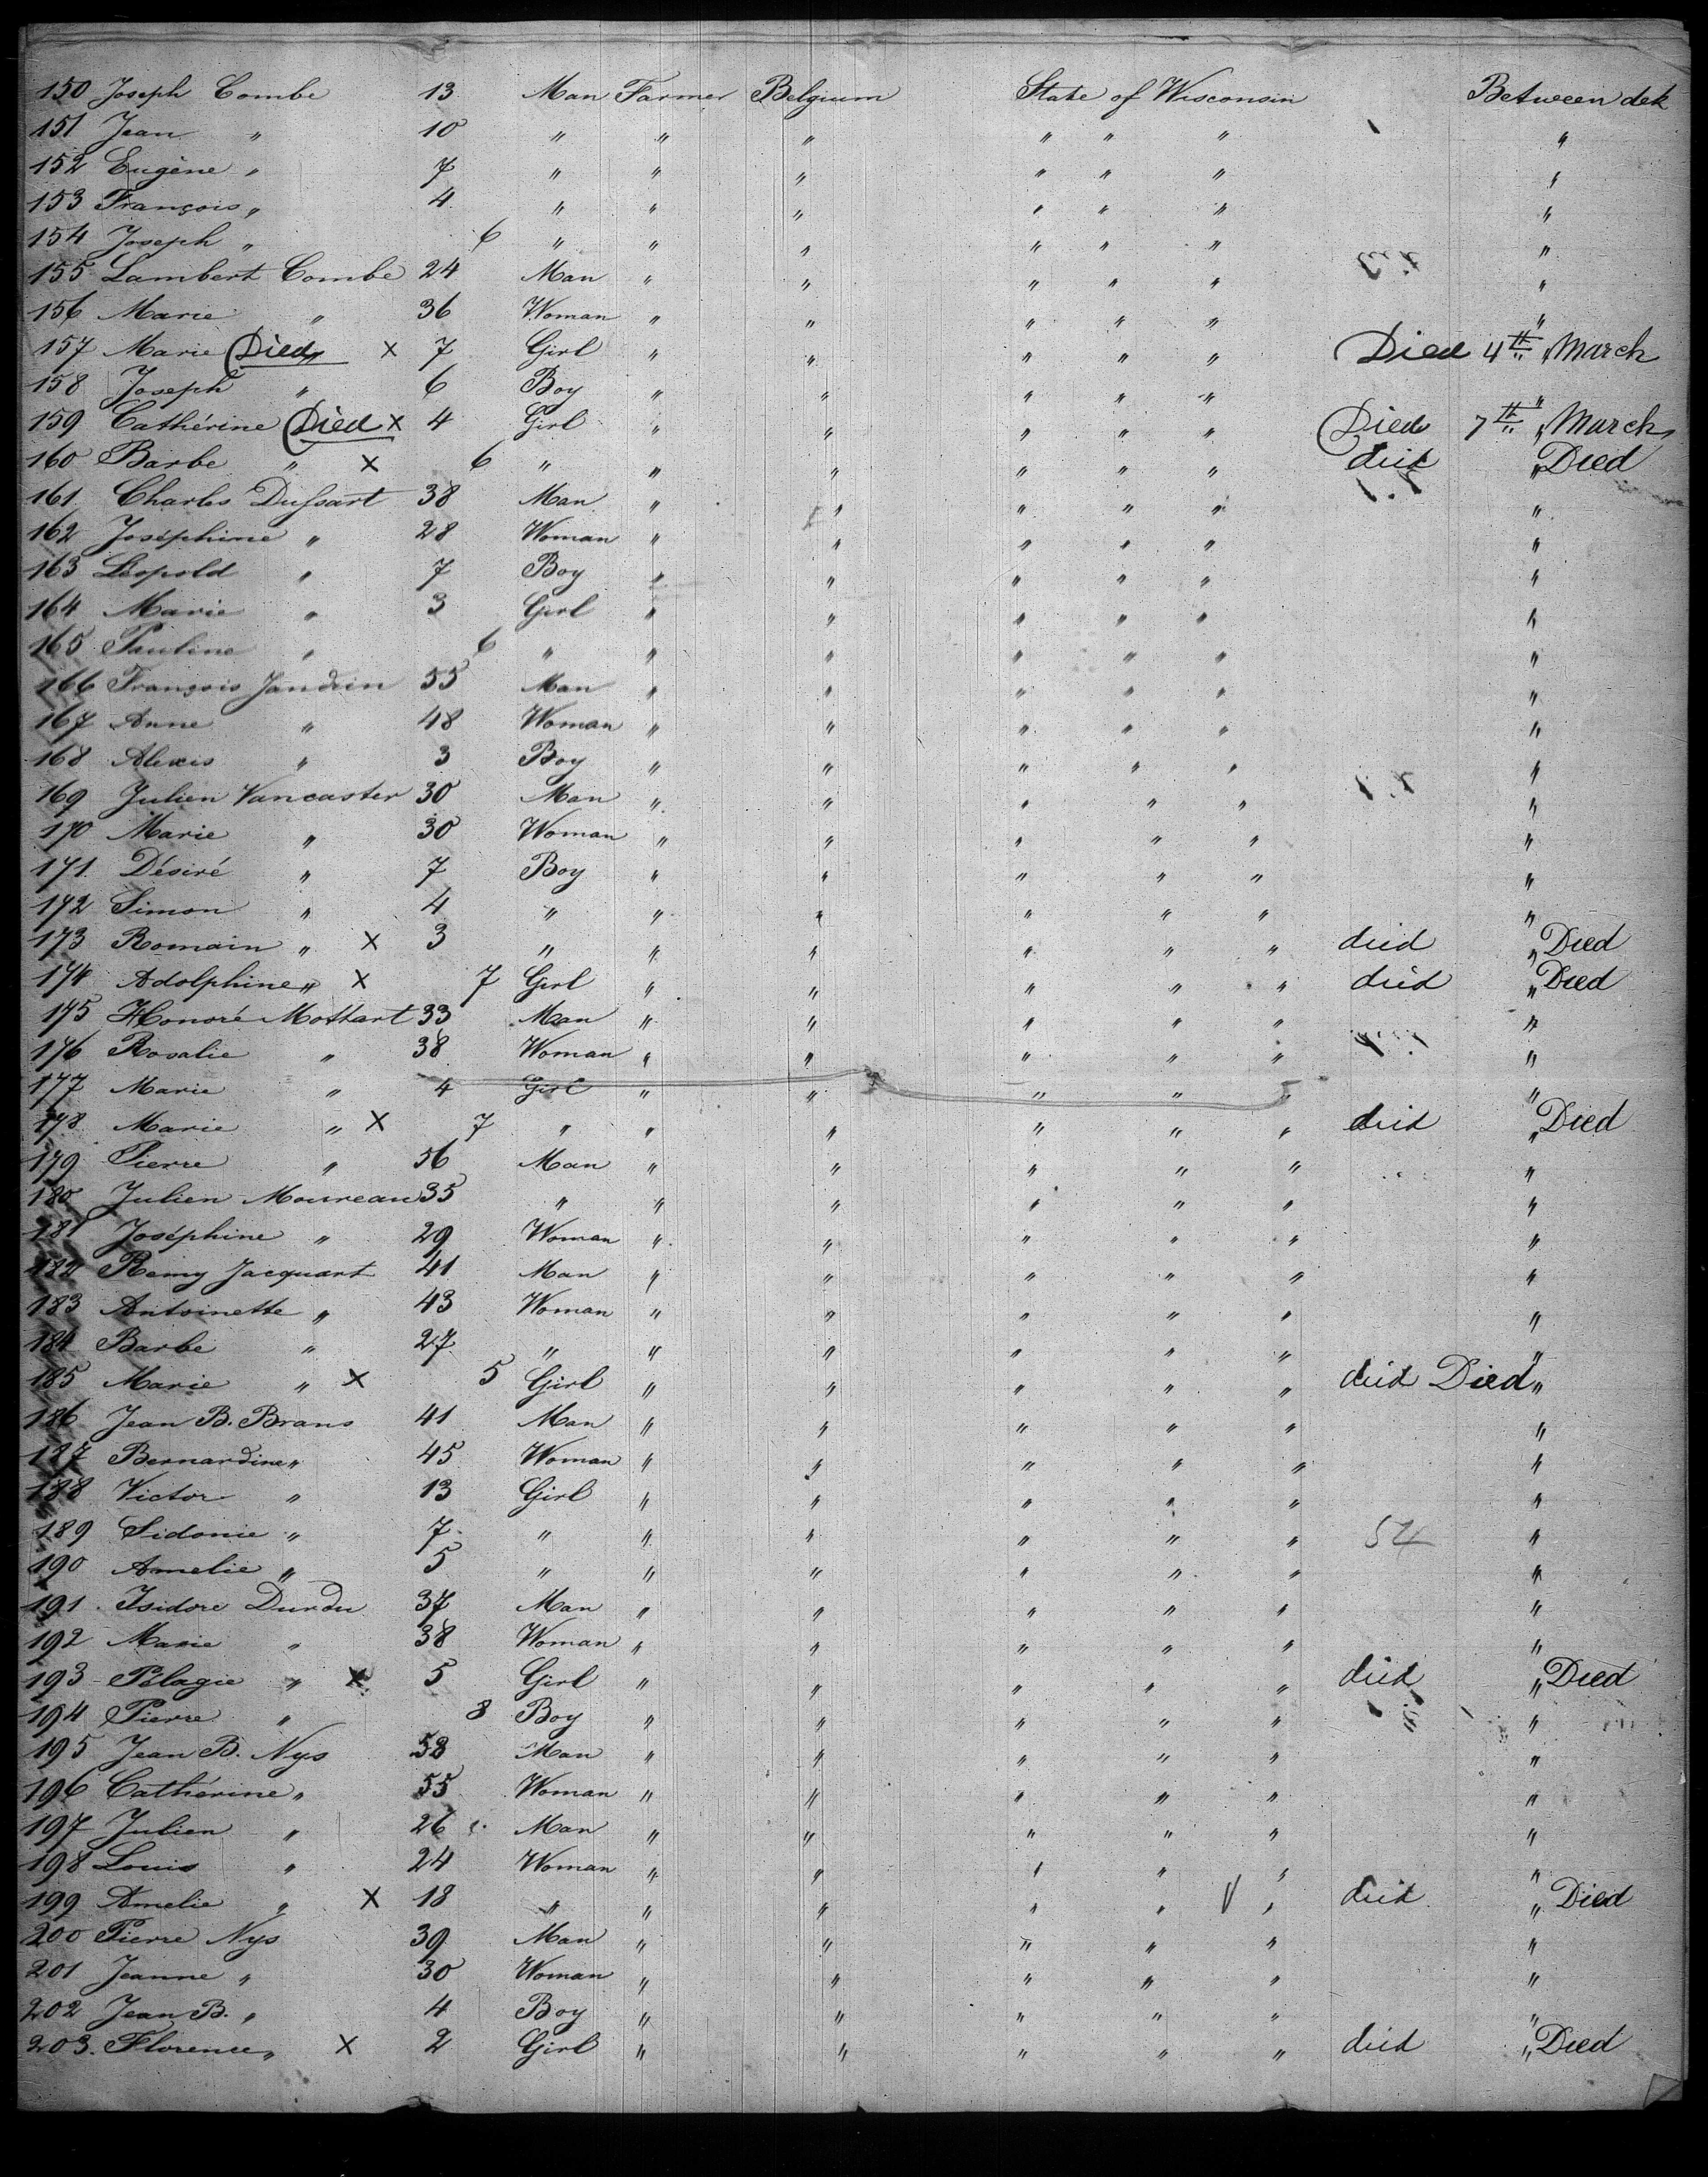 150 Joseph Combe 13 Man Farmer Belgium State of Wisconsin Between dek
151 Jean " 10 " " " " " " "
152 Eugène " 7 " " " " " " "
153 François " 4 " " " " " " "
154 Joseph " 6 " " " " " " "
155 Lambert Combe 24 Man " " " " " "
156 Marie " 36 Woman " " " " " "
157 Marie " Died X 7 Girl " " " " " Died 4th " March
158 Joseph " 6 Boy " " " " " "
159 Cathérine Died X 4 Girl " " " " " Died 7th " March
160 Barbe " X 6 " " " " " " died " Died
161 Charles Dussart 38 Man " " " " " "
162 Joséphine " 28 Woman " " " " " "
163 Léopold " 7 Boy " " " " " "
164 Marie " 3 Girl " " " " " "
165 Pauline " 6 " " " " " " "
166 François Jandrin 55 Man " " " " " "
167 Anne " 48 Woman " " " " " "
168 Alexis " 3 Boy " " " " " "
169 Julien Vancaster 30 Man " " " " " "
170 Marie " 30 Woman " " " " " "
171 Désiré " 7 Boy " " " " " "
172 Simon " 4 " " " " " " "
173 Romain " X 3 " " " " " " died " Died
174 Adolphine " X 7 Girl " " " " " died " Died
175 Honoré Mottart 33 Man " " " " " "
176 Rosalie " 38 Woman " " " " " "
177 Marie " 4 Girl " " " " " "
178 Marie " X 7 " " " " " " died " Died
179 Pierre " 56 Man " " " " " "
180 Julien Moureau 35 " " " " " " "
181 Joséphine " 29 Woman " " " " " "
182 Remy Jacquart 41 Man " " " " " "
183 Antoinette " 43 Woman " " " " " "
184 Barbe " 27 " " " " " " "
185 Marie " X 5 Girl " " " " " died Died "
186 Jean B. Brans 41 Man " " " " " "
187 Bernardine " 45 Woman " " " " " "
188 Victor " 13 Girl " " " " " "
189 Sidonie " 7 " " " " " " 54 "
190 Amelie " 5 " " " " " " "
191 Isidore Durdu 37 Man " " " " " "
192 Marie " 38 Woman " " " " " "
193 Pélagie " X 5 Girl " " " " " died " Died
194 Pierre " 8 Boy " " " " " "
195 Jean B. Nys 58 Man " " " " " "
196 Cathérine " 55 Woman " " " " " "
197 Julien " 26 Man " " " " " "
198 Louis " 24 Woman " " " " " "
199 Amelie " X 18 " " " " " V " died " Died
200 Pierre Nys 39 Man " " " " " "
201 Jeanne " 30 Woman " " " " " "
202 Jean B. " 4 Boy " " " " " "
203. Florence " X 2 Girl " " " " " died " Died